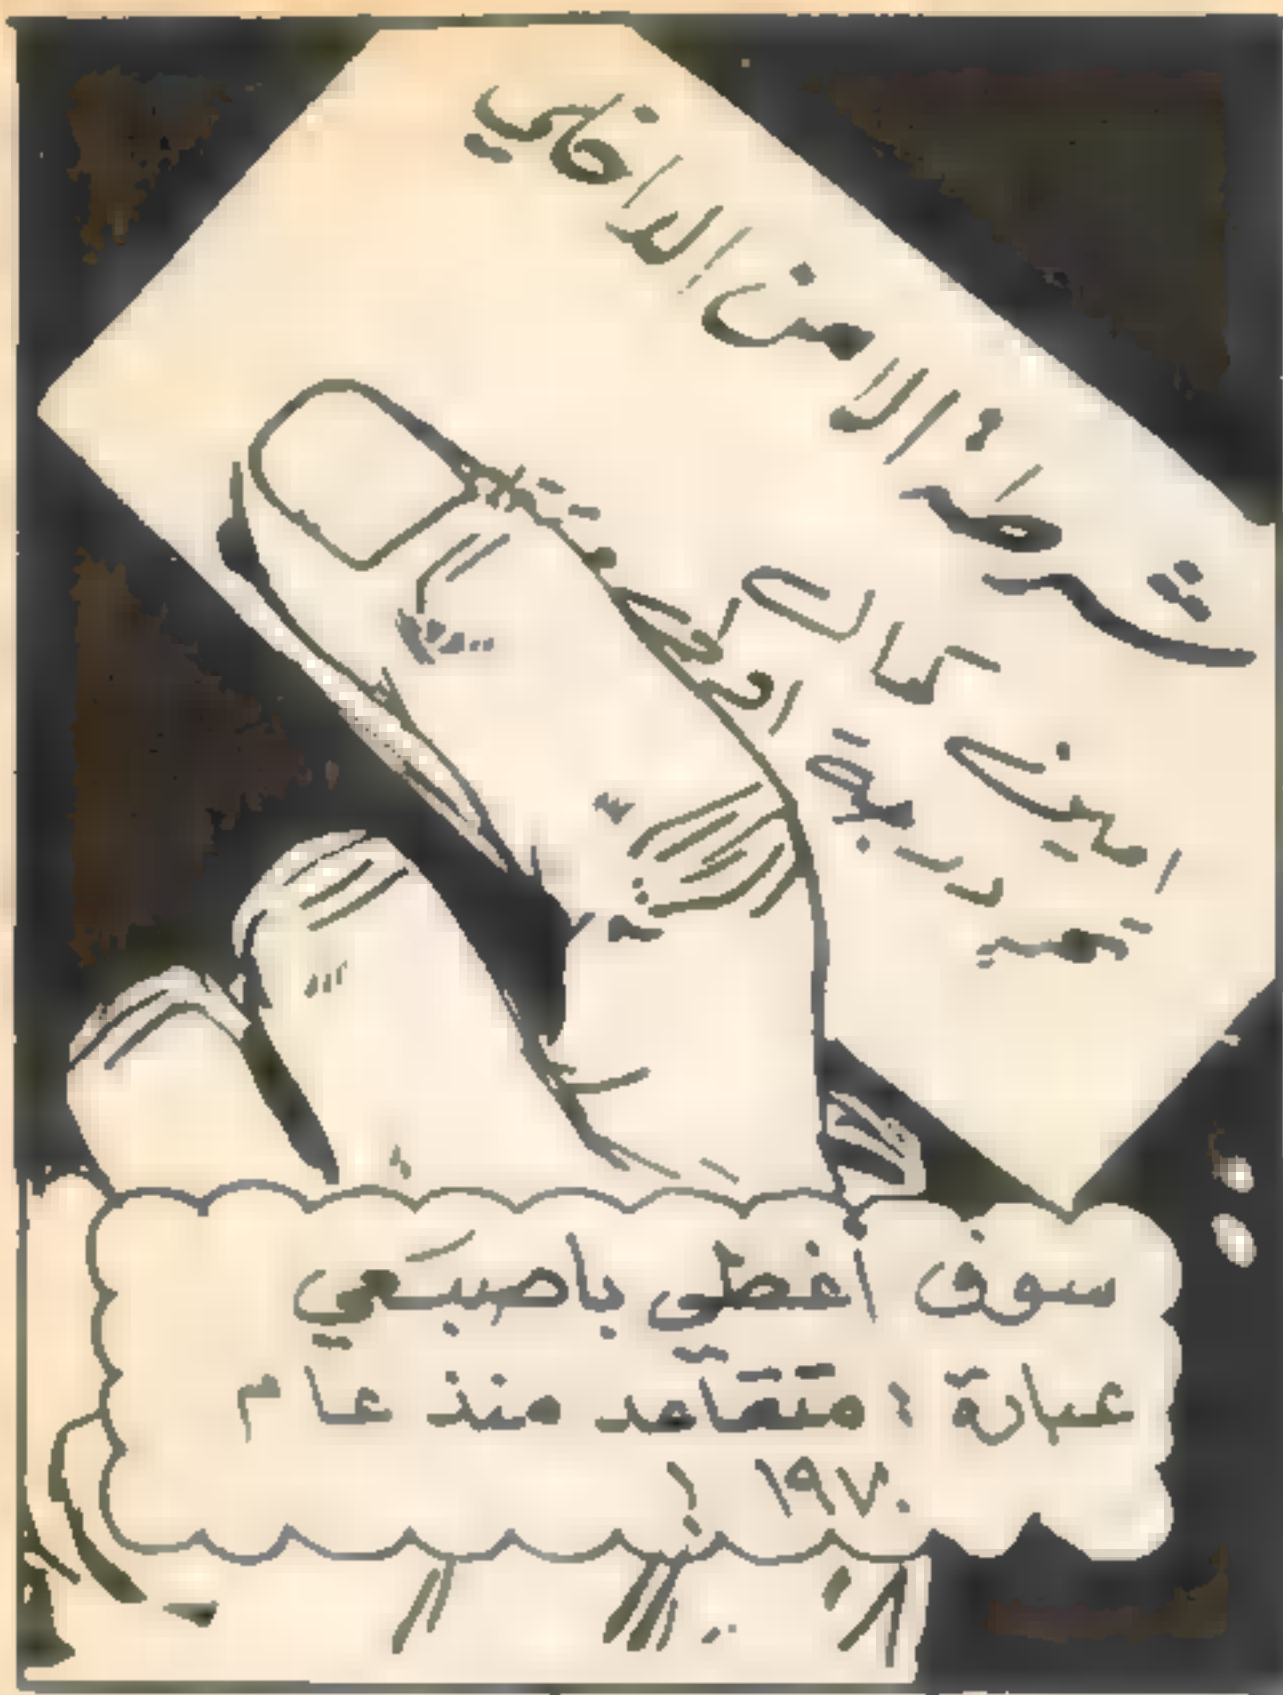 شرطة الامن الداخلي
كمال
امين
سوف أغطي باصبَعي
عبارة : متقاعد منذ عام
١٩٧٠ !